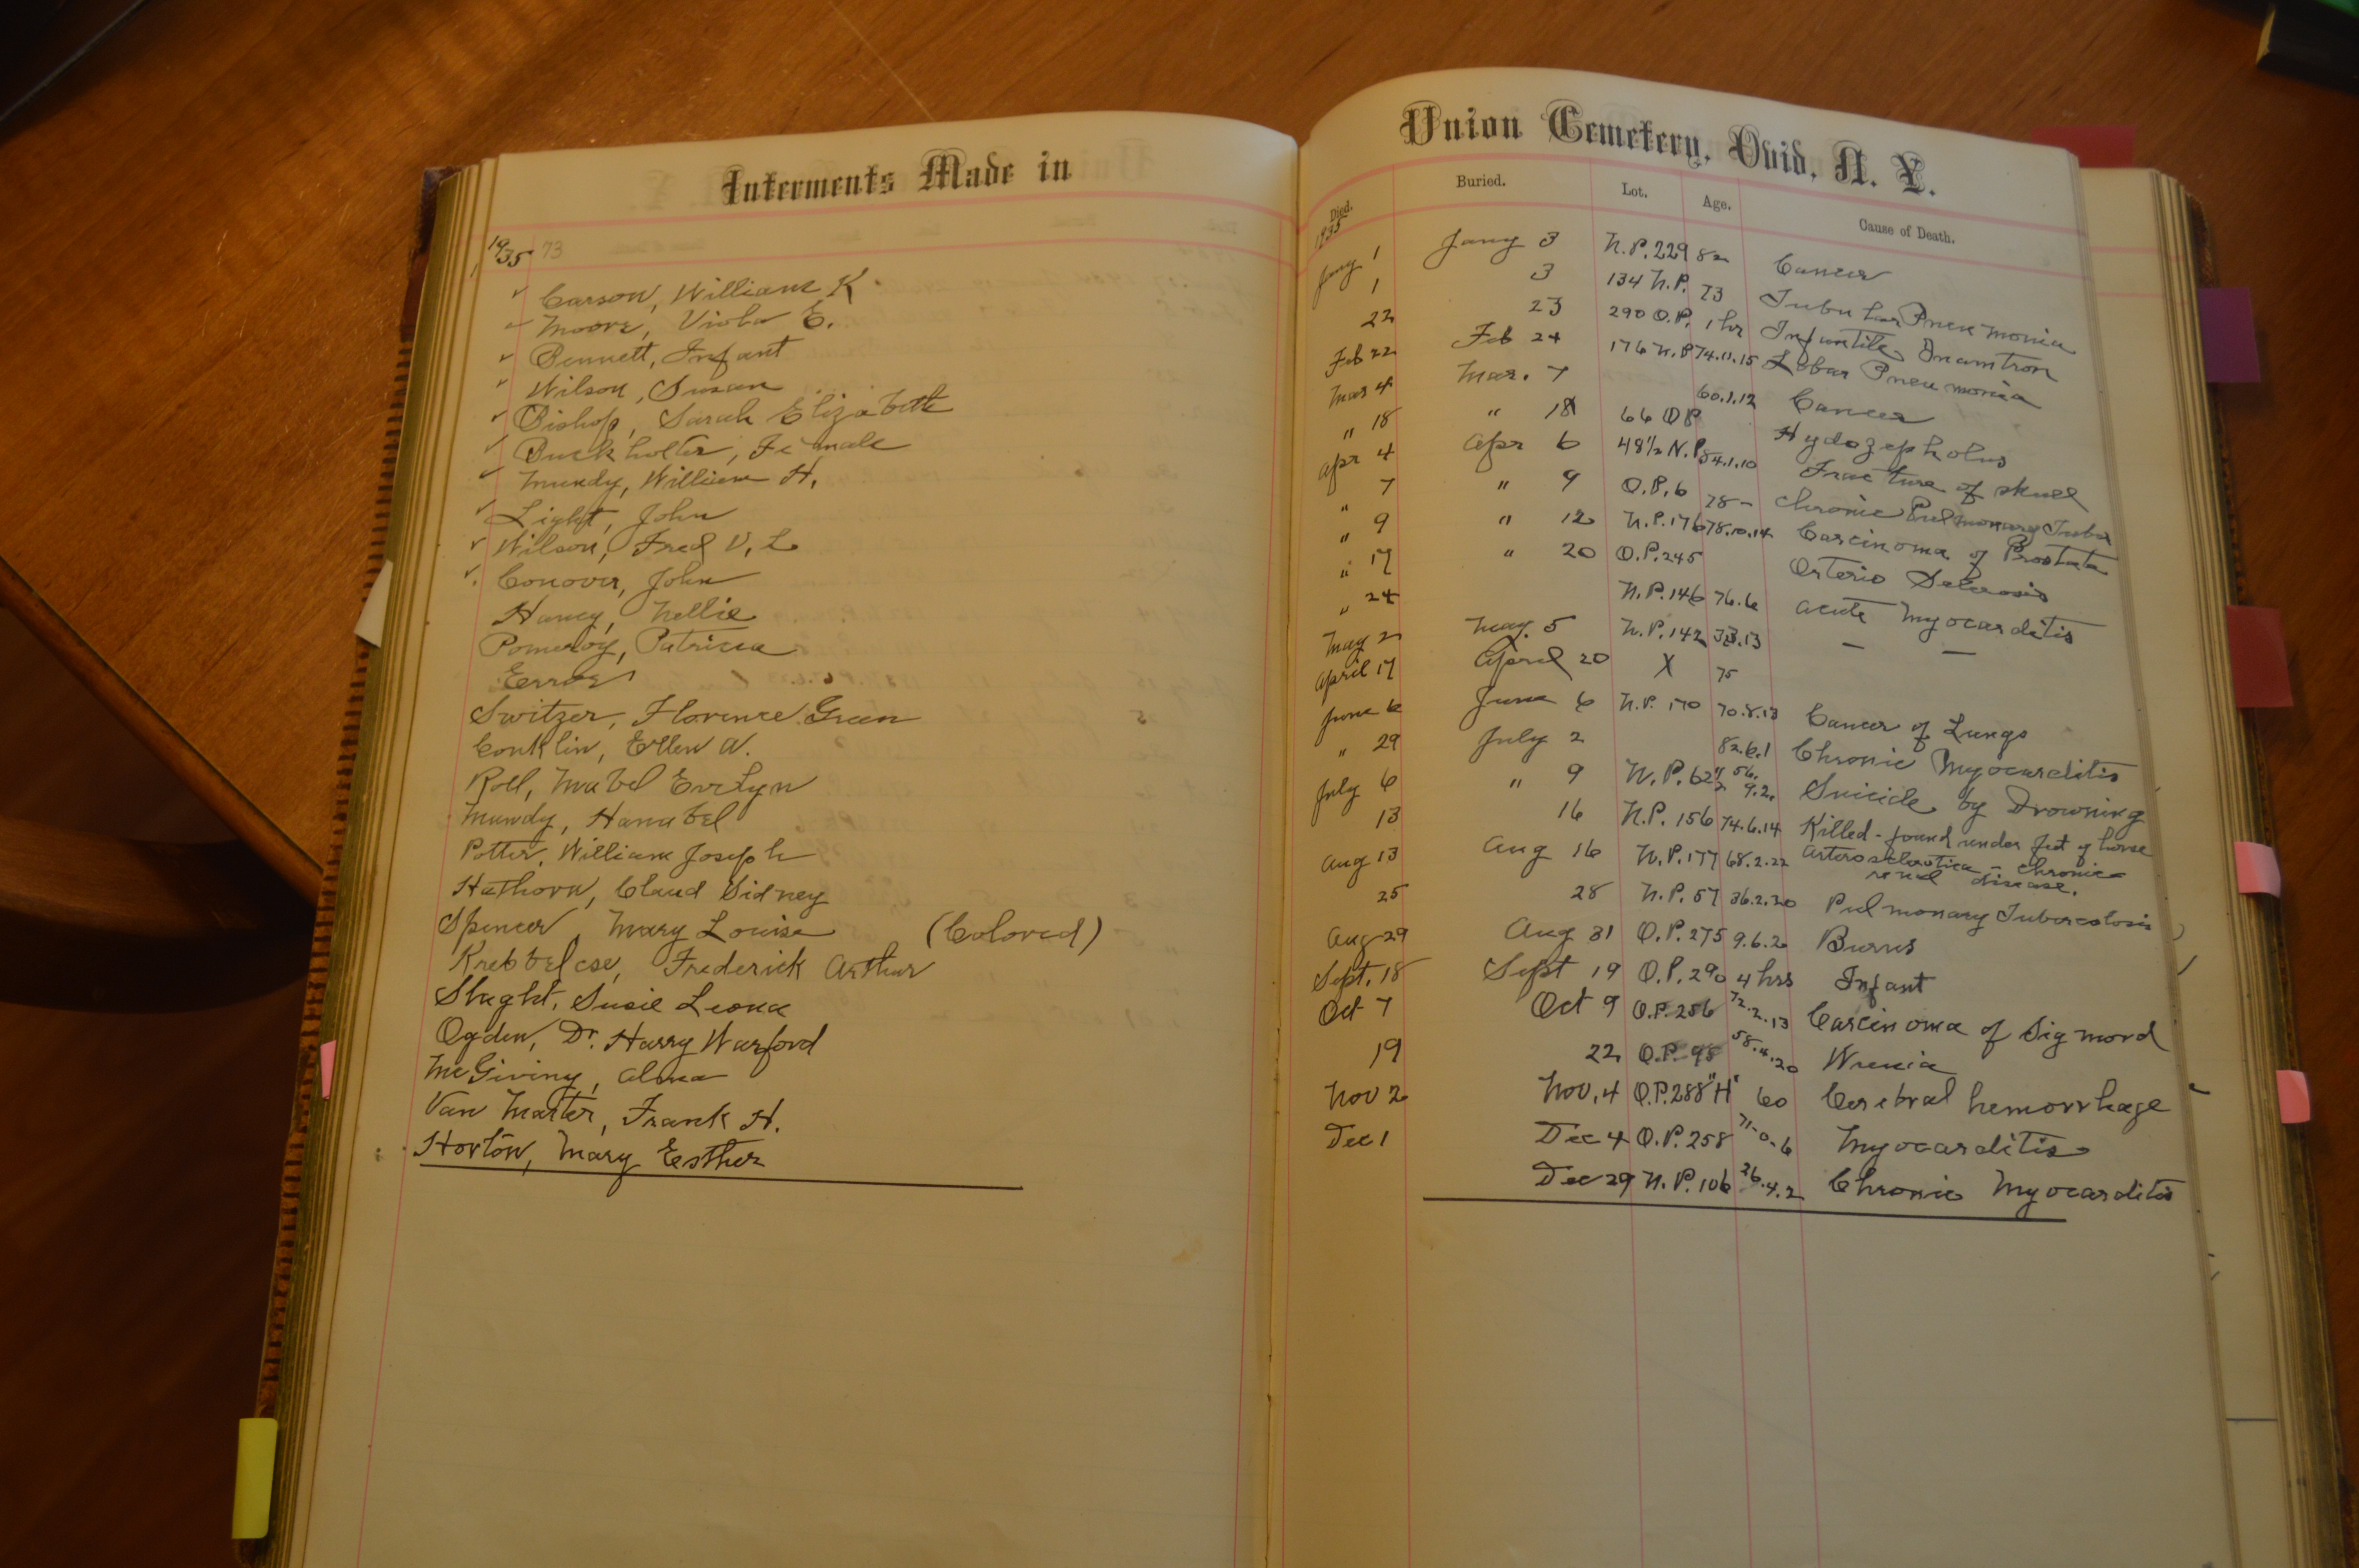 Interments Made in
1935 73
Carson, William K.
Moore, Viola E.
Bennett, Infant
Wilson, Susan
Bishop, Sarah Elizabeth
Buckholter, Female
Mundy, William H.
Light, John
Wilson, Fred V. L
Conover, John
Haney, Nellie
Pomeroy, Patricia
Error
Switzer, Florence Green
Conklin, Ellen W.
Roll, Mabel Evelyn
Mundy, Hannabel
Potter, William Joseph
Hathorn, Claud Sidney
Spencer, Mary Louise (Colored)
Frederick Arthur
Slaght, Susie Leona
Ogden, Dr. Harry Warford
McGiviny, Alma
Van Marter, Frank H.
Horton, Mary Esther
Union Cemetery, Ovid, N. Y.
Died. Buried. Lot. Age. Cause of Death.
1935
Jany 1 Jany 3 N.P. 229 82 Cancer
1 3 134 N.P. 73 Tubular Pneumonia
22 23 290 O.P. 1 hr Infantile Inanition
Feb 22 Feb 24 176 N.P 74.11.15 Lobar Pneumonia
Mar 4 Mar. 7 60.1.12 Cancer
" 18 " 18 66 OP Hydozepholus
Apr 4 Apr 6 48½ N.P. 54.1.10 Fracture of skull
" 7 " 9 O.P. 6 78 - Chronic Pulmonary Tuber
" 9 " 12 N.P. 176 78.10.14 Carcinoma of Prostata
" 17 " 20 O.P. 245 Arterio Sclerosis
" 24 N.P. 146 76.6 Acute Myocarditis
May 2 May 5 N.P. 142 — —
April 17 April 20 X 75
June 6 June 6 N.P. 170 70.8.13 Cancer of Lungs
" 29 July 2 82.6.1 Chronic Myocarditis
July 6 " 9 N.P. 62 56. 9.2. Suicide by Drowning
13 16 N.P. 156 74.6.14 Killed - found under feet of horse
Aug 13 Aug 16 N.P. 177 68.2.22 Arterosclerotica - chronic
renal disease.
25 28 N.P. 57 36.2.20 Pulmonary Tuberculosis
Aug 29 Aug 31 O.P. 275 9.6.2 Burns
Sept. 18 Sept 19 O.P. 290 4 hrs Infant
Oct 7 Oct 9 O.P. 256 72.2.13 Carcinoma of Sigmord
19 22 O.P. 98 58.4.20 Wremia
Nov 2 Nov, 4 O.P. 288 "H" 60 Cerebral hemorrhage
Dec 1 Dec 4 O.P. 258 71-0-6 Myocarditis
Dec 29 N.P. 106 26.4.2 Chronic Myocarditis